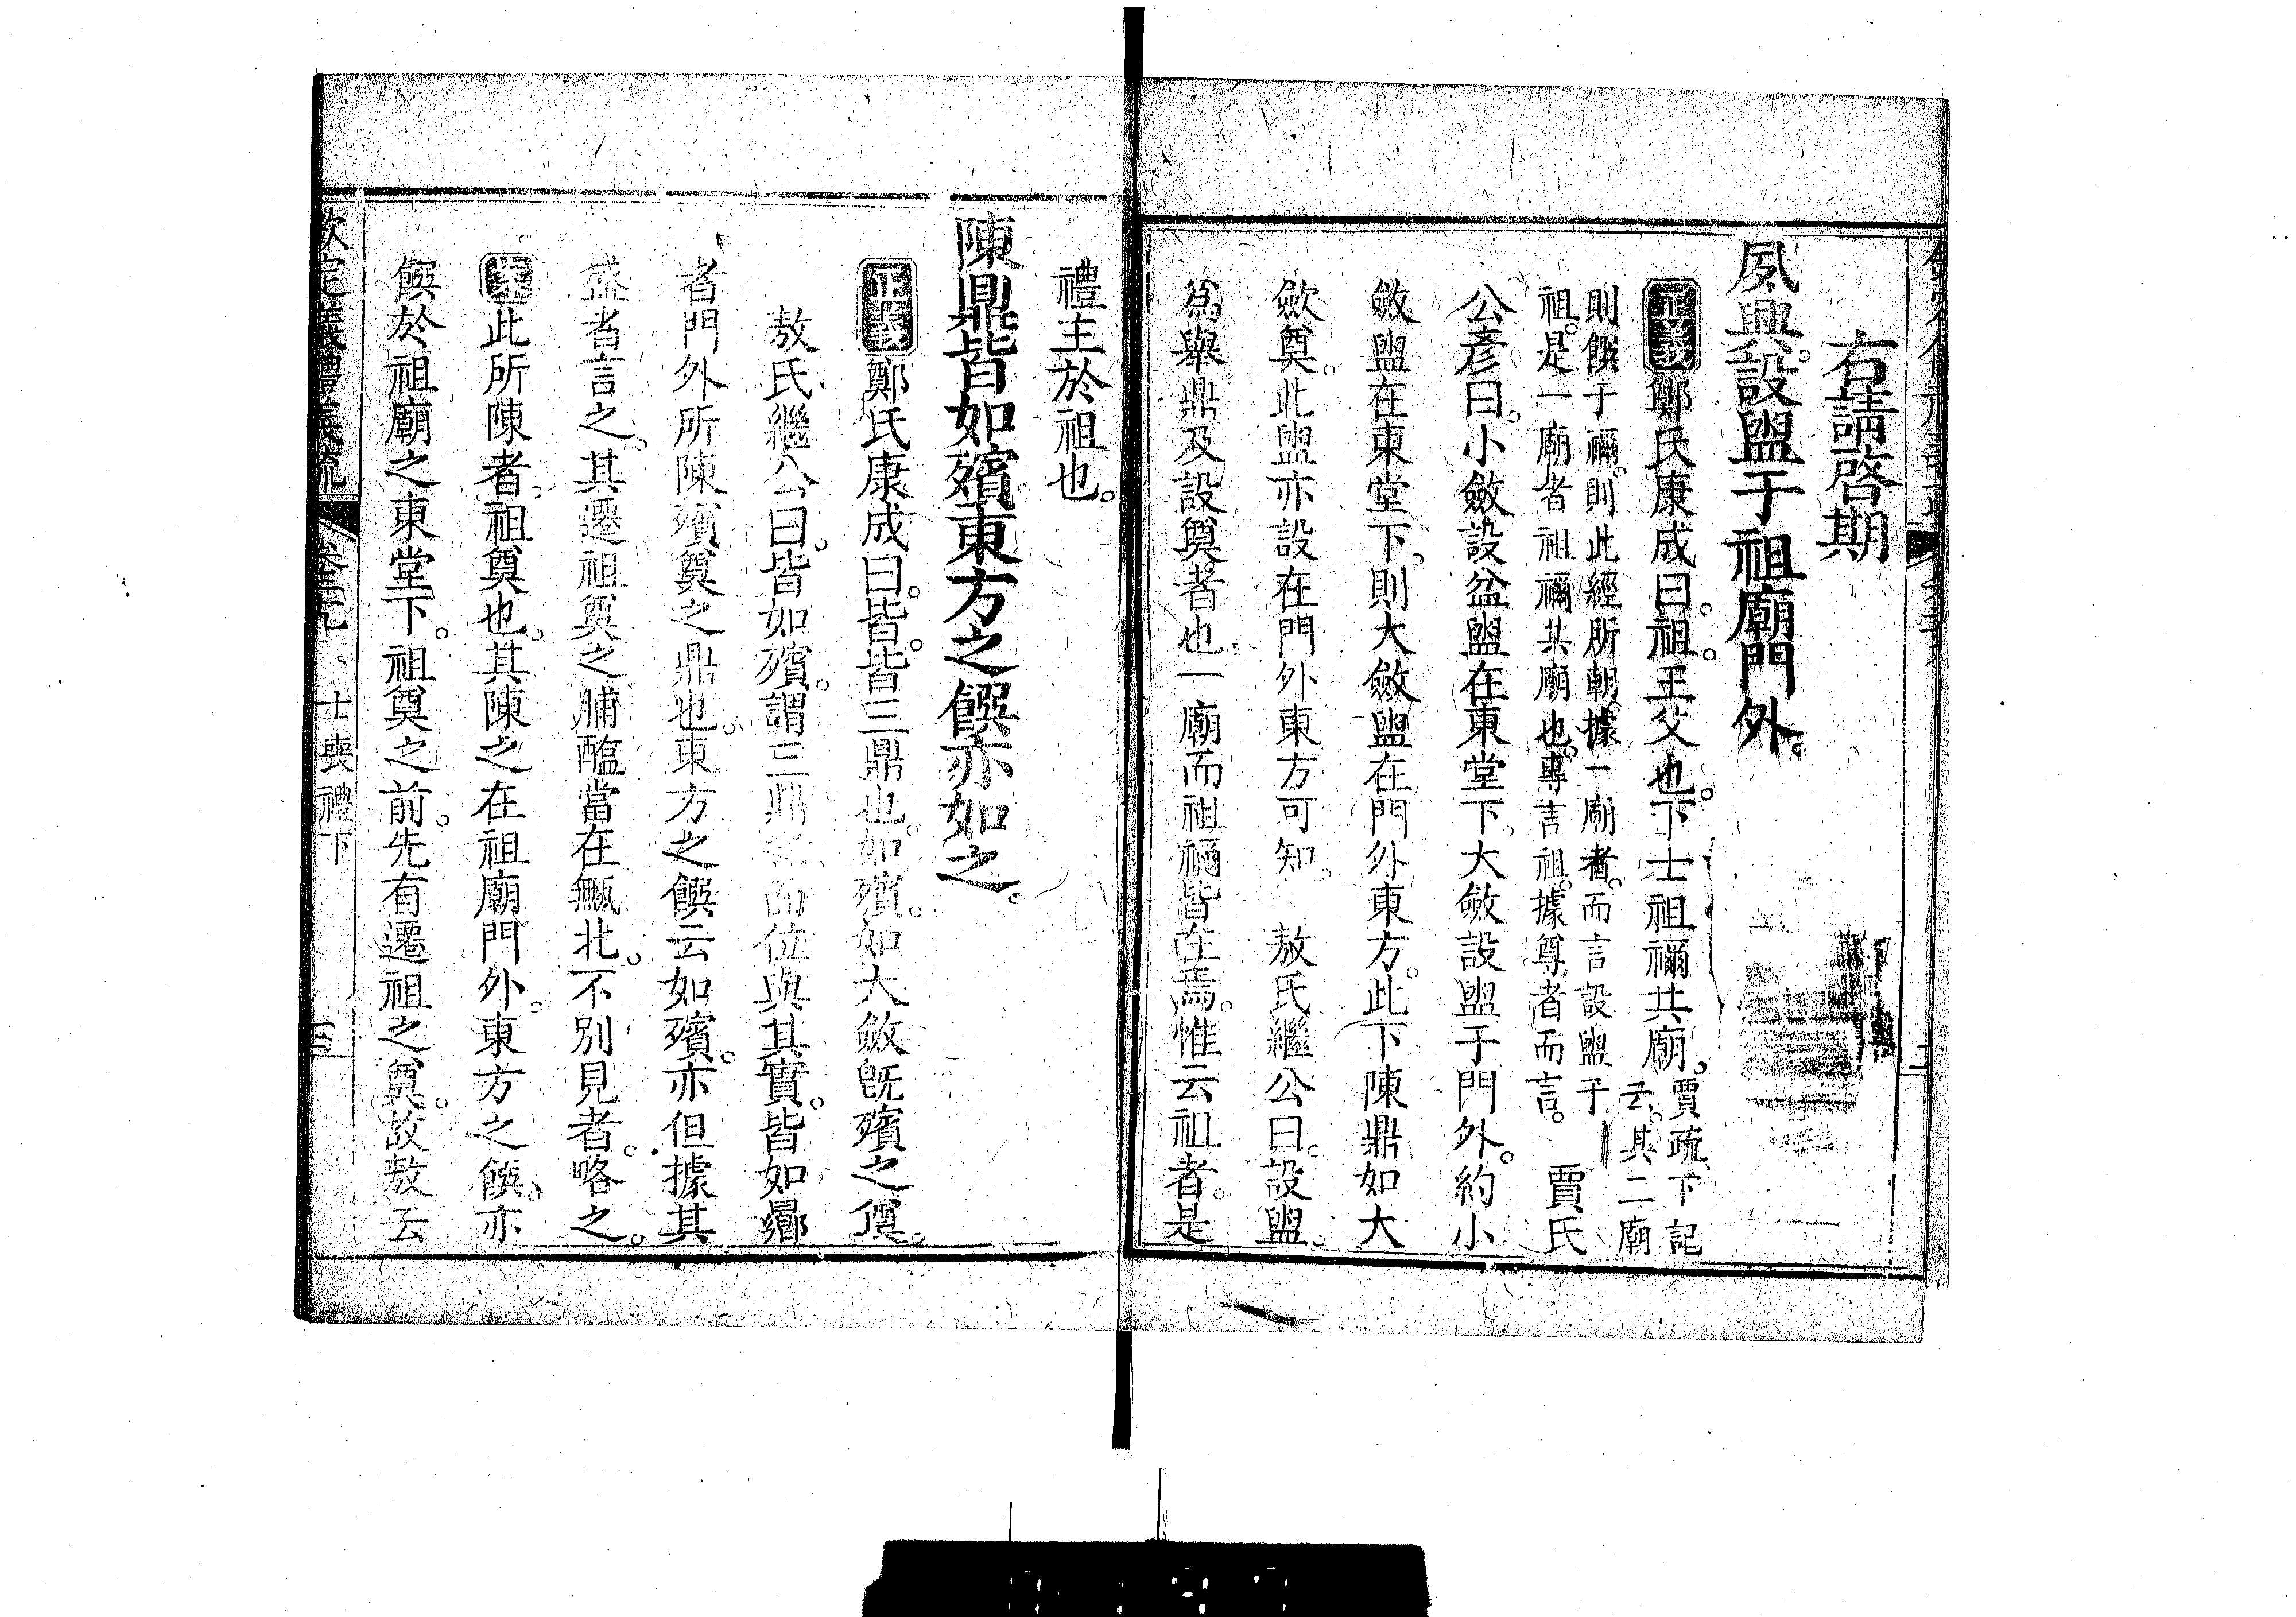 右請啓期
夙興。設盥于祖廟門外。
正義鄭氏康成曰。祖。王父也。下士祖禰共廟。賈疏。下記
云。其二廟
則饌于禰。則此經所朝。據一廟者。而言設盥于
祖。是一廟者祖禰共廟也。專言祖。據尊者而言。賈氏
公彥曰。小斂設盆盥在東堂下。大斂設盥于門外。約小
斂盥在東堂下。則大斂盥在門外東方。此下陳鼎如大
斂奠。此盥亦設在門外東方可知。敖氏繼公曰。設盥。
爲舉鼎及設奠者也。一廟而祖禰皆在焉。惟云祖者。是
禮主於祖也。
陳鼎皆如殯。東方之饌亦如之。
正義鄭氏康成曰。皆。皆三鼎也。如殯。如大斂旣殯之奠。
敖氏繼公曰。皆如殯。謂三鼎之面位與其實。皆如鄉
者門外所陳殯奠之鼎也。東方之饌云如殯。亦但據其
盛者言之。其遷祖奠之脯醢當在甒北。不別見者。略之。
案此所陳者。祖奠也。其陳之在祖廟門外。東方之饌。亦
饌於祖廟之東堂下。祖奠之前。先有遷祖之奠。故敖云
欽定義禮義疏 卷二十九 士喪禮下 三